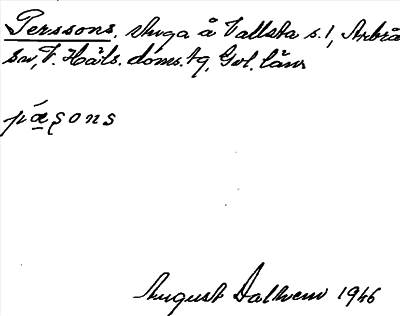 Perssons. stuga å Vallsta s.1, Arbrå
sn, V. Häls. doms.tg. Gvl. län
pǽşons
August Dalhem 1946